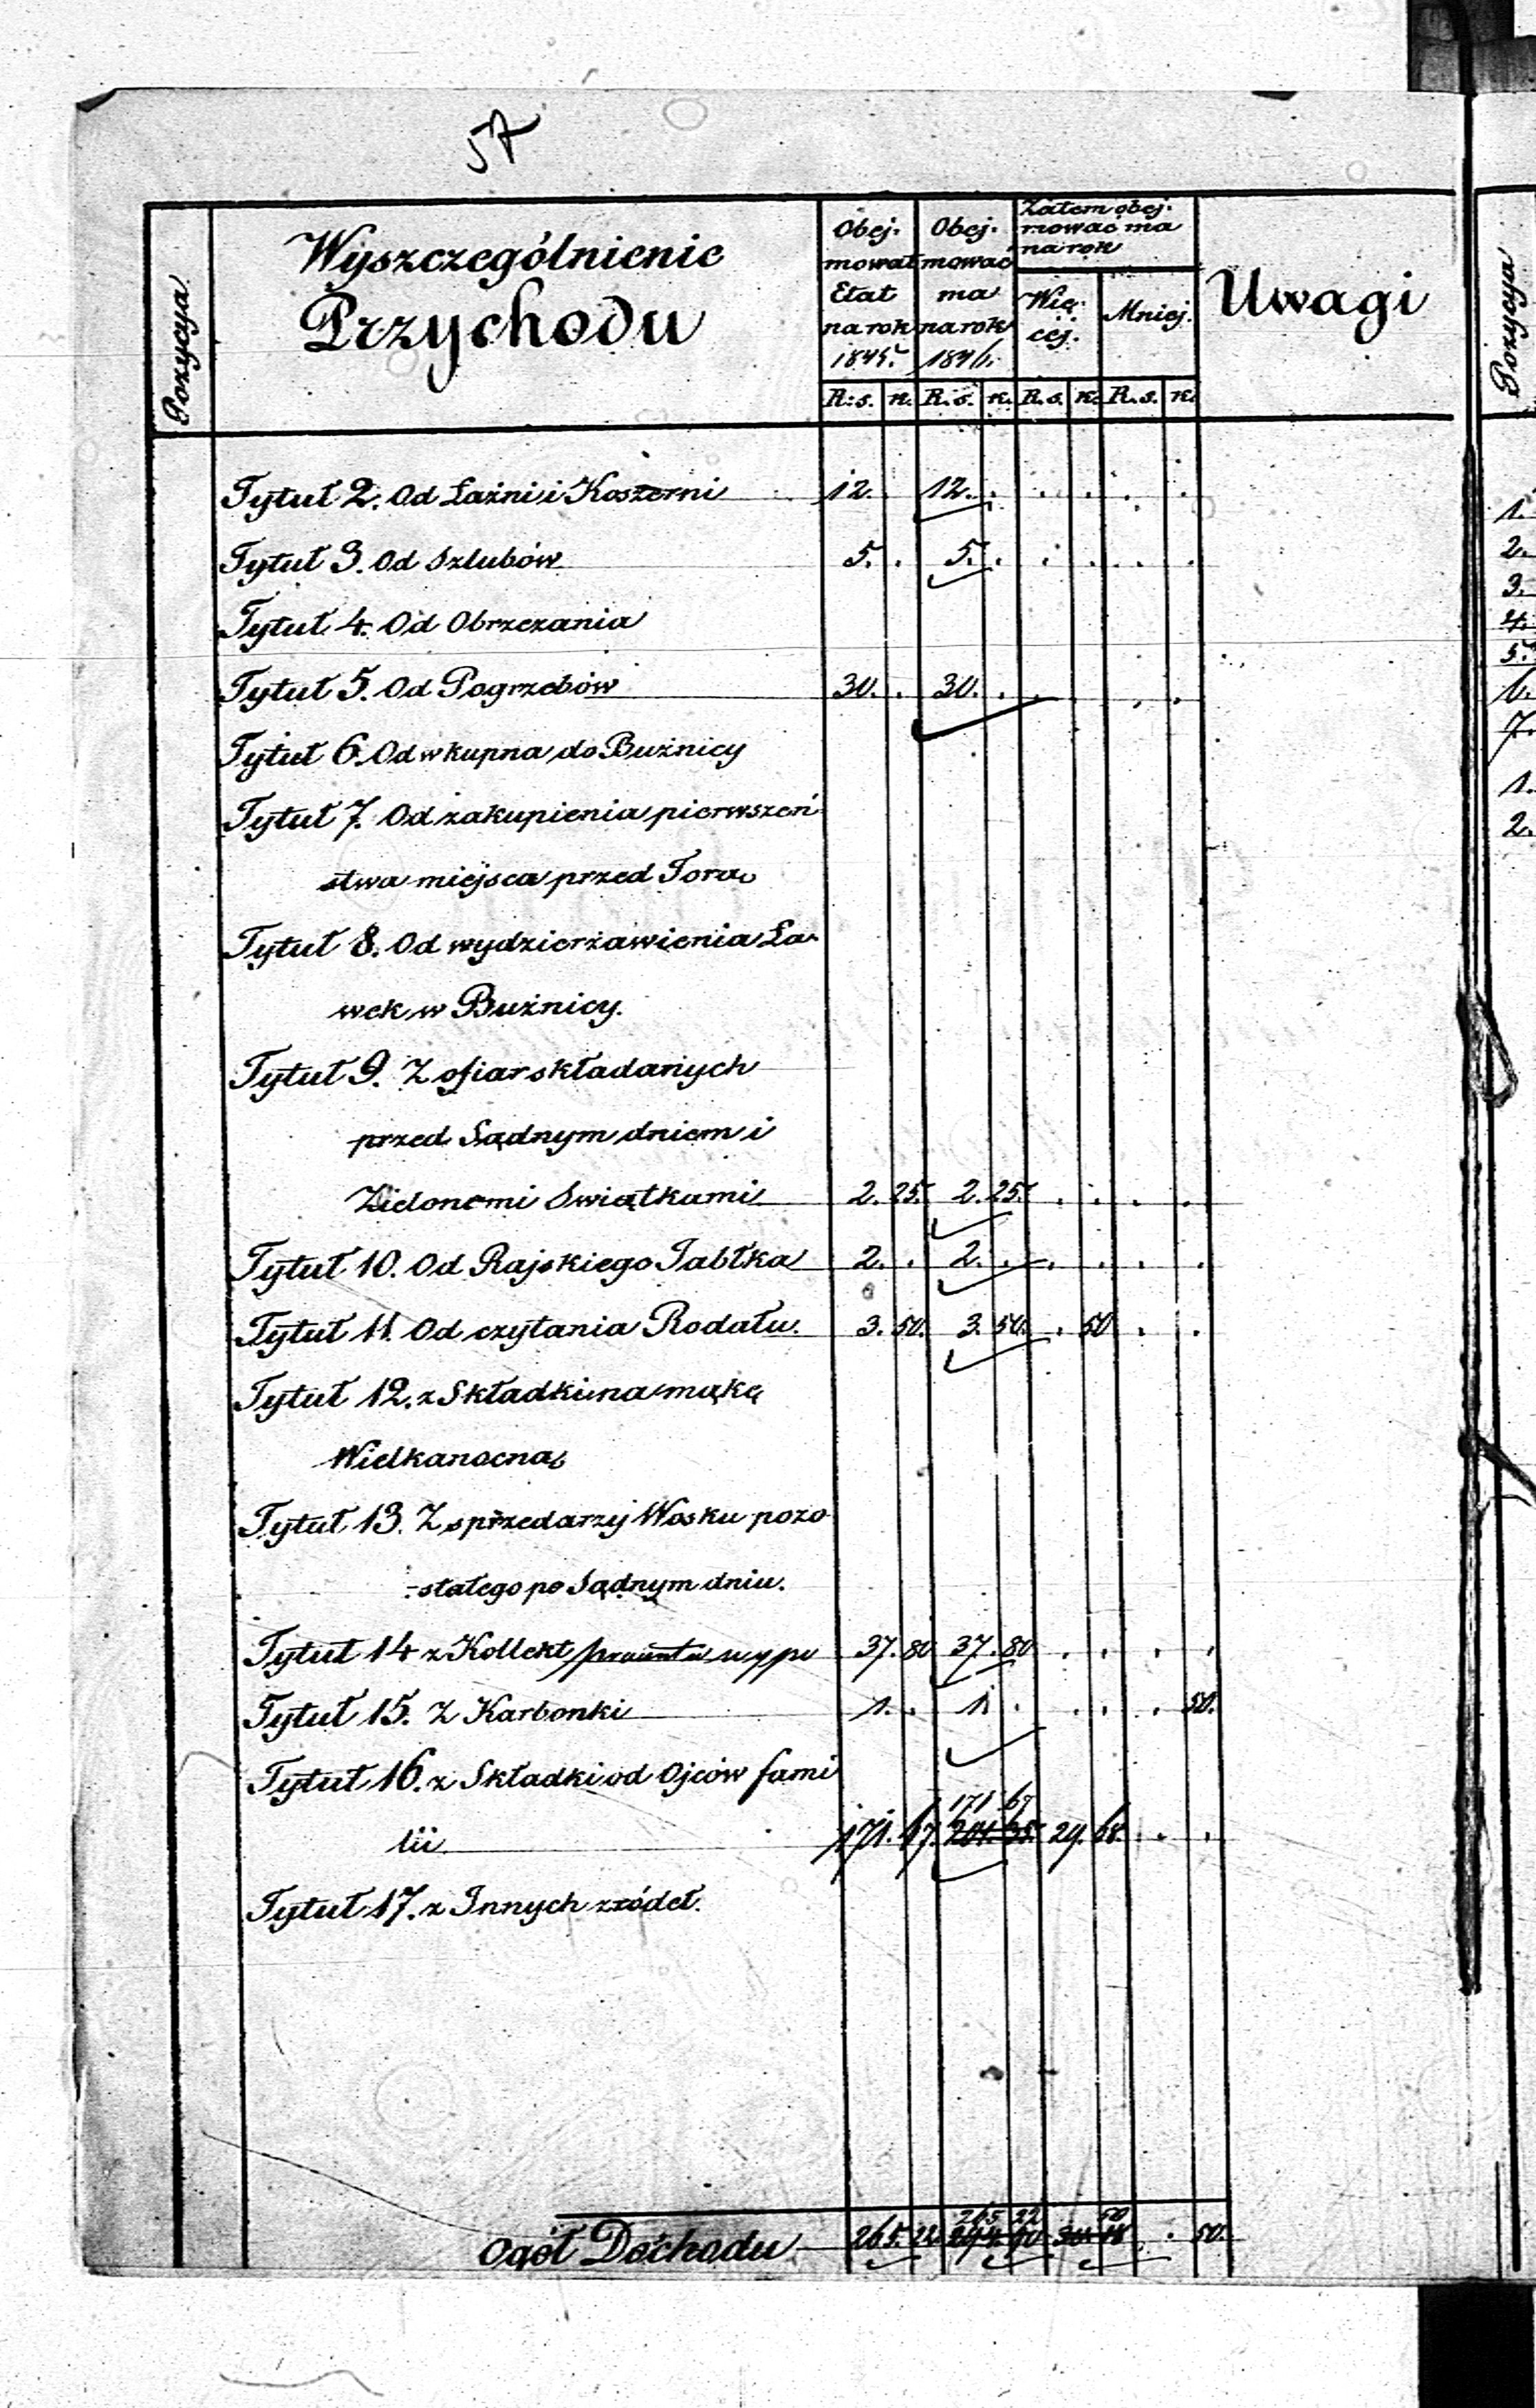 57
Pozycya
Wyszczególnienie
Przychodu
Obej-
mował
Etat
na rok
1845.
Obej-
mować
ma
na rok
1846.
Zatem obej-
mować ma
na rok
Wię-
cej.
Mniej.
Uwagi
R:s. k. R.s. k. R.s. k. R.s. k.
Tytuł 2. Od Łaźni i Koszerni 12. . 12. . . . . .
Tytuł 3. Od Szlubów 5. . 5. . . . . .
Tytuł 4. Od Obrzezania
Tytuł 5. Od Pogrzebów 30. . 30. . . . .
Tytuł 6. Od wkupna do Bużnicy
Tytuł 7. Od zakupienia pierwszeń-
stwa miejsca przed Torą
Tytuł 8. Od wydzierżawienia Ła-
wek w Bużnicy.
Tytuł 9. Z ofiar składanych
przed Sądnym dniem i
Zielonemi Swiątkami 2. 25. 2. 25. . . . .
Tytuł 10. Od Rajskiego Jabłka 2. . 2. . . . . .
Tytuł 11. Od czytania Rodału. 3. 50. 3. 50. . 50 . .
Tytuł 12. z Składki na mąkę
Wielkanocną
Tytuł 13. Z sprzedarzy Wosku pozo
-stałego po Sądnym dniu.
Tytuł 14 z Kollekt 37. 80 37. 80 . . . .
Tytuł 15. Z Karbonki 1. . 1. . . . . 50.
Tytuł 16. z Składki od Ojców fami
171 67
lii 171. 67. 201. 35. 29. 68. . .
Tytuł 17. z Innych zródeł.
265 22 50
Ogół Dochodu 265. 22. 294. 90 30. 18 . 50.
Pozycya
1.
2.
3.
4.
5.
6.
7.
1.
2.